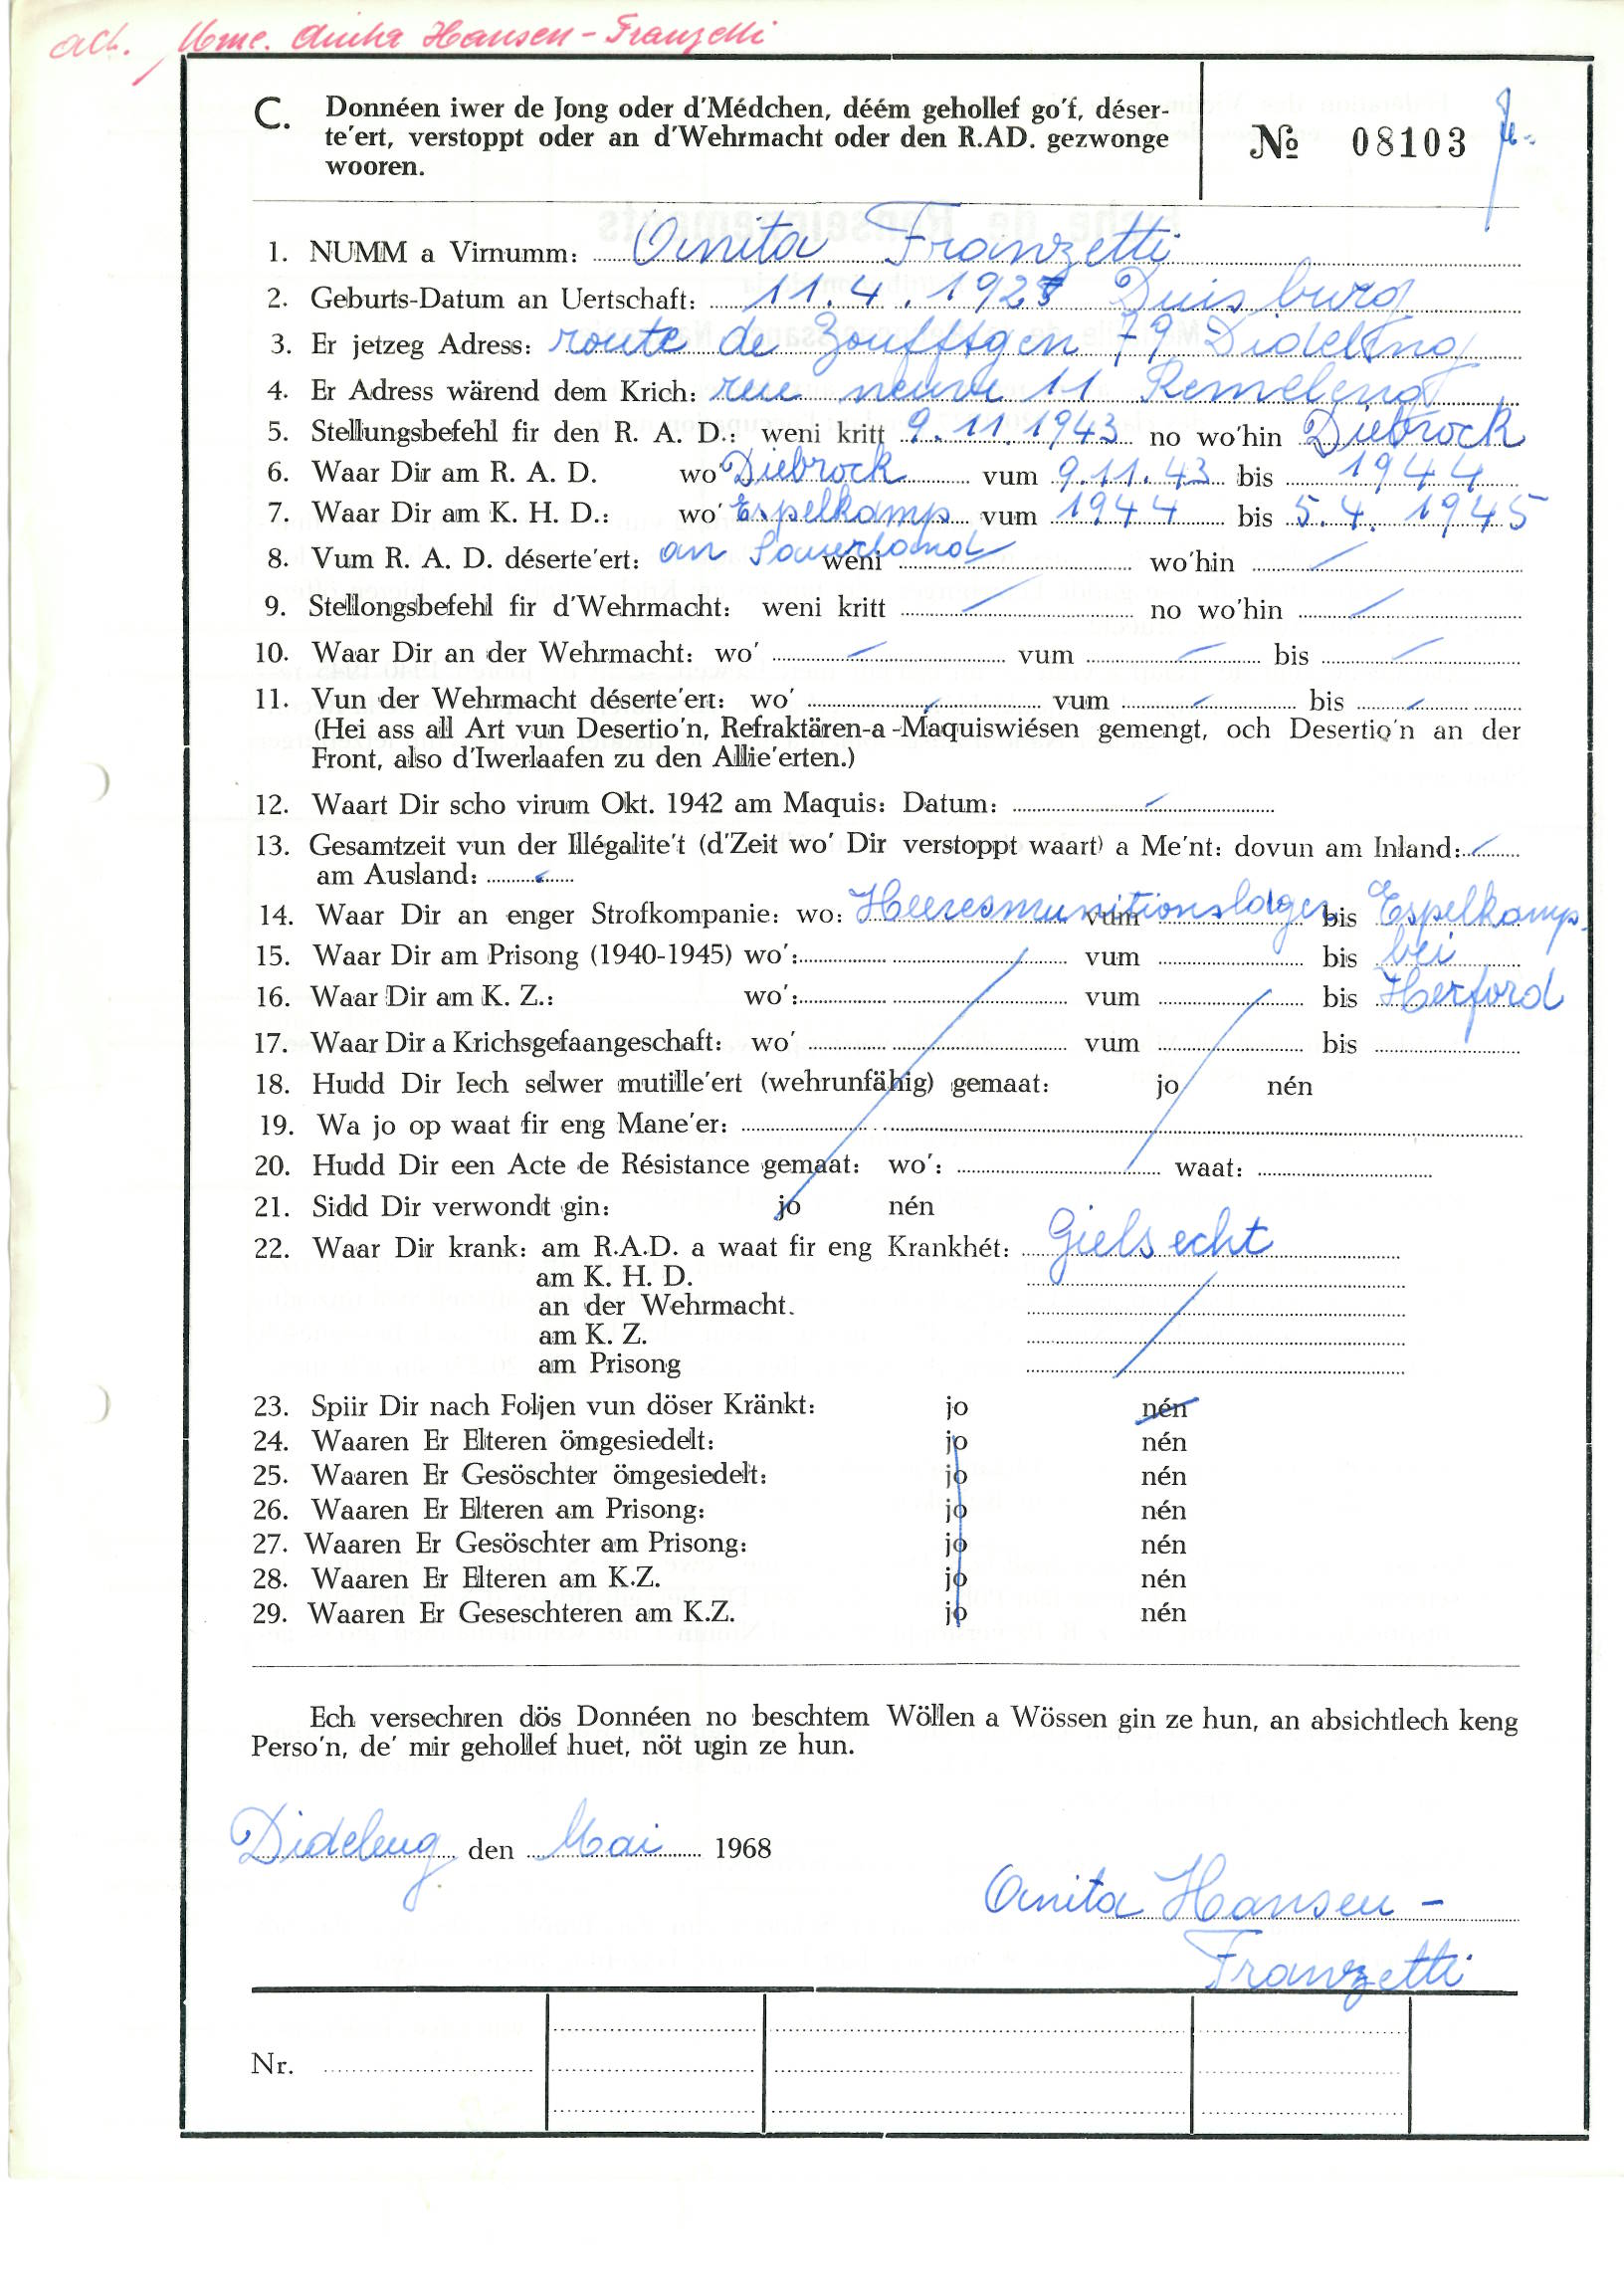 Mme. Anita Hansen - Franzetti
C. Donnéen iwer de Jong oder d'Médchen, déém gehollef go'f, déser-
te'ert, verstoppt oder an d'Wehrmacht oder den R.AD. gezwonge
wooren.
№ 08103
1. NUMM a Virnumm: Anita Franzetti
2. Geburts-Datum an Uertschaft: 11.4.1925 Duisburg
3. Er jetzeg Adress: route de Zoufftgen 79 Dideleng
4. Er Adress wärend dem Krich: rue neuve 11 Remeleng
5. Stellungsbefehl fir den R. A. D.: weni kritt 9.11.1943 no wo'hin Diebrock
6. Waar Dir am R. A. D. wo' Diebrock vum 9.11.43 bis 1944
7. Waar Dir am K. H. D.: wo' Espelkamp vum 1944 bis 5.4.1945
8. Vum R. A. D. déserte'ert: an Sauerland weni wo'hin /
9. Stellongsbefehl fir d'Wehrmacht: weni kritt / no wo'hin /
10. Waar Dir an der Wehrmacht: wo' / vum / bis /
11. Vun der Wehrmacht déserte'ert: wo' / vum / bis /
(Hei ass all Art vun Desertio'n, Refraktären-a-Maquiswiésen gemengt, och Desertio'n an der
Front, also d'Iwerlaafen zu den Allie'erten.)
12. Waart Dir scho virum Okt. 1942 am Maquis: Datum: /
13. Gesamtzeit vun der Illégalite't (d'Zeit wo' Dir verstoppt waart) a Me'nt: dovun am Inland: /
am Ausland: /
14. Waar Dir an enger Strofkompanie: wo: Heeresmunitionslager vum bis Espelkamp
15. Waar Dir am Prisong (1940-1945) wo': vum bis bei
16. Waar Dir am K. Z.: wo': vum bis Herford
17. Waar Dir a Krichsgefaangeschaft: wo' vum bis
18. Hudd Dir Iech selwer mutille'ert (wehrunfähig) gemaat: jo nén
19. Wa jo op waat fir eng Mane'er:
20. Hudd Dir een Acte de Résistance gemaat: wo': waat:
21. Sidd Dir verwondt gin: jo nén
22. Waar Dir krank: am R.A.D. a waat fir eng Krankhét: Gielsecht
am K. H. D.
an der Wehrmacht.
am K. Z.
am Prisong
23. Spiir Dir nach Foljen vun döser Kränkt: jo nén
24. Waaren Er Elteren ömgesiedelt: jo nén
25. Waaren Er Gesöschter ömgesiedelt: jo nén
26. Waaren Er Elteren am Prisong: jo nén
27. Waaren Er Gesöschter am Prisong: jo nén
28. Waaren Er Elteren am K.Z. jo nén
29. Waaren Er Geseschteren am K.Z. jo nén
Ech versechren dös Donnéen no beschtem Wöllen a Wössen gin ze hun, an absichtlech keng
Perso'n, de' mir gehollef huet, nöt ugin ze hun.
Dideleng den Mai 1968
Anita Hansen -
Franzetti
Nr.